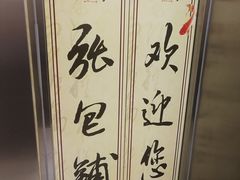 张包铺
欢迎您